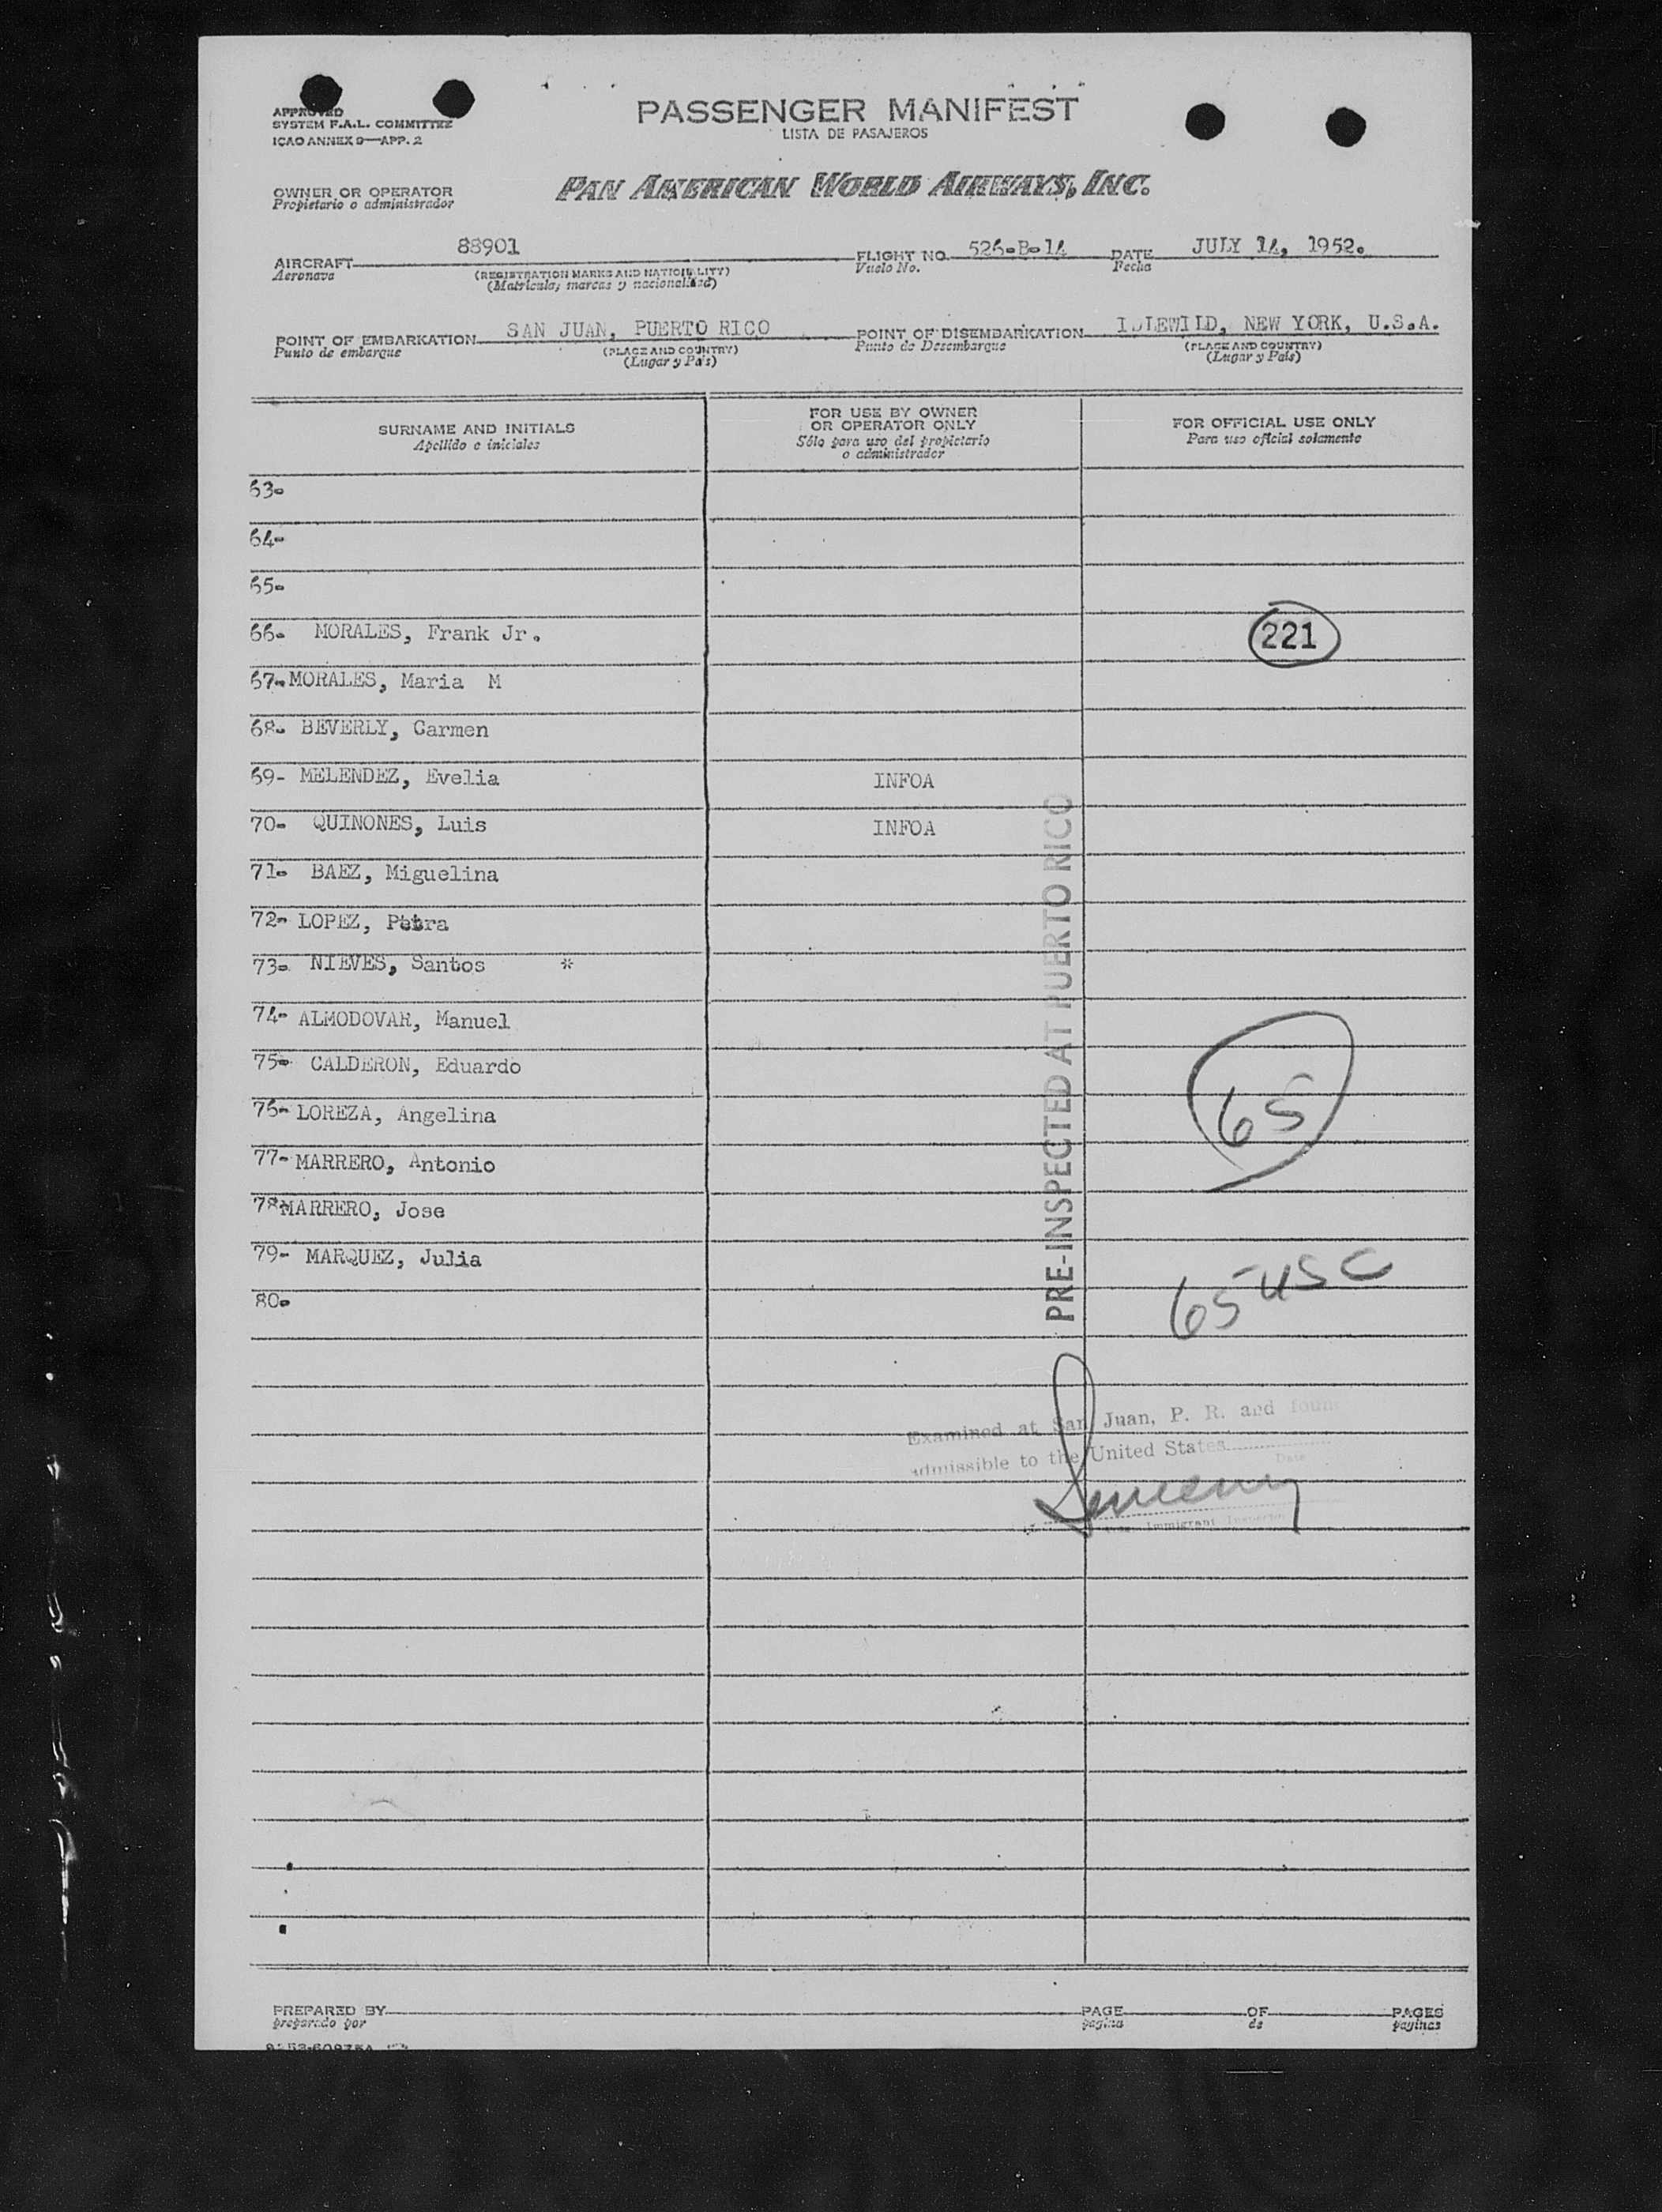 APPROVED
SYSTEM F.A.L. COMMITTEE
ICAO ANNEX 9—APP. 2
PASSENGER MANIFEST
LISTA DE PASAJEROS
OWNER OR OPERATOR
Propietario o administrador
PAN AMERICAN WORLD AIRWAYS, INC.
AIRCRAFT 88901
Aeronave
(REGISTRATION MARKS AND NATIONALITY)
(Matricula, marcas y nacionalidad)
FLIGHT NO. 526-B-14
Vuelo No.
DATE JULY 14, 1952.
Fecha
POINT OF EMBARKATION SAN JUAN, PUERTO RICO
Punto de embarque
(PLACE AND COUNTRY)
(Lugar y País)
POINT OF DISEMBARKATION IDLEWILD, NEW YORK, U.S.A.
Punto de Desembarque
(PLACE AND COUNTRY)
(Lugar y País)
SURNAME AND INITIALS
Apellido e iniciales
FOR USE BY OWNER
OR OPERATOR ONLY
Sólo para uso del propietario
o administrador
FOR OFFICIAL USE ONLY
Para uso oficial solamente
63-
64-
65-
66- MORALES, Frank Jr.
221
67- MORALES, Maria M
68- BEVERLY, Carmen
69- MELENDEZ, Evelia INFOA
70- QUINONES, Luis INFOA
71- BAEZ, Miguelina
72- LOPEZ, Petra
73- NIEVES, Santos *
74- ALMODOVAR, Manuel
75- CALDERON, Eduardo
76- LOREZA, Angelina
77- MARRERO, Antonio
78- MARRERO, Jose
79- MARQUEZ, Julia
80-
PRE-INSPECTED AT PUERTO RICO
65
65-USC
Examined at San Juan, P. R. and found
admissible to the United States
Date
Immigrant Inspector
PREPARED BY
preparado por
PAGE OF PAGES
pagina de paginas